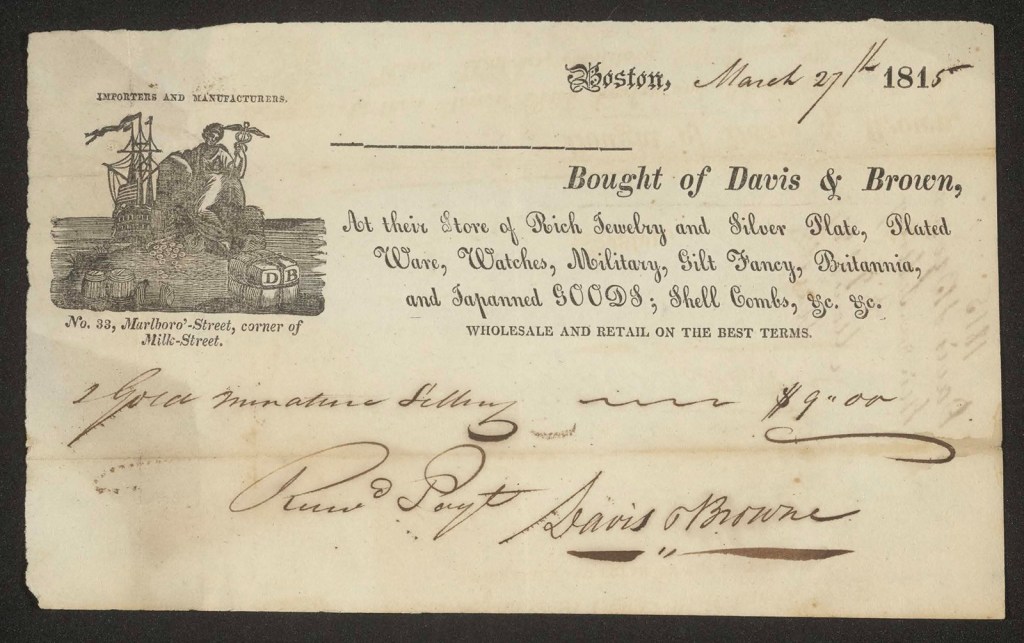 Boston, March 27th 1815
IMPORTERS AND MANUFACTURERS.
Bought of Davis & Brown,
At their Store of Rich Jewelry and Silver Plate, Plated
Ware, Watches, Military, Gilt Fancy, Britannia,
and Japanned GOODS; Shell Combs, &c. &c.
WHOLESALE AND RETAIL ON THE BEST TERMS.
D B
No. 33, Marlboro'-Street, corner of
Milk-Street.
1 Gold miniature Setting $9.00
Recev'd Payt Davis & Browne